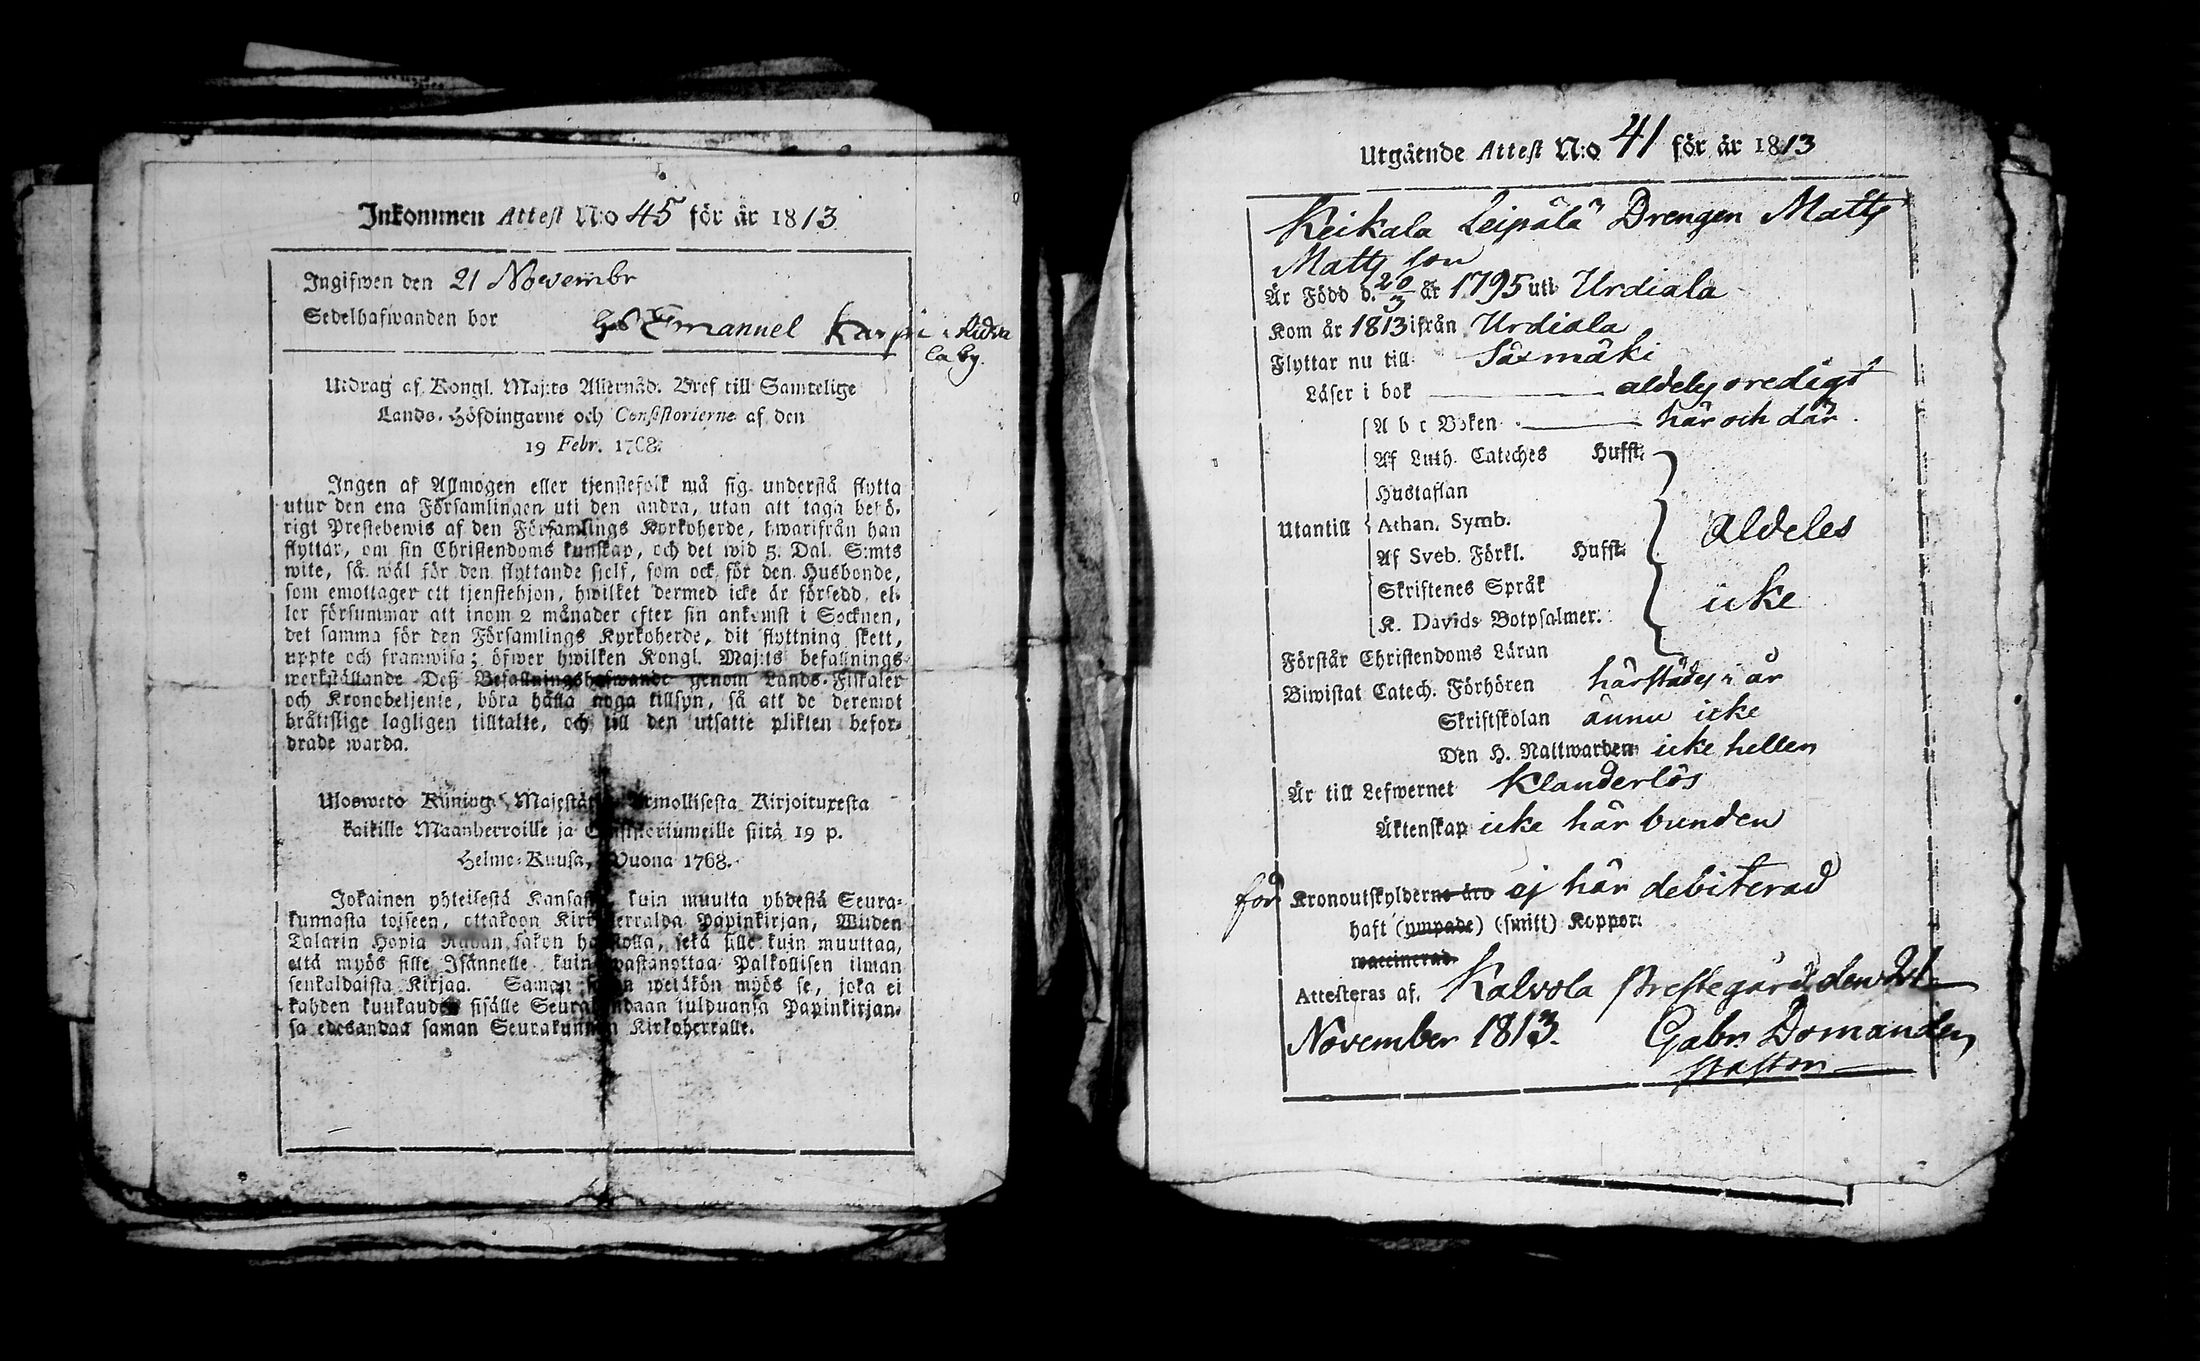 Inkommen Attest N:o 45 för år 1813
Ingifwen den 21 Novembr
Sedelhafwanden bor hos Emanuel Karpi i Ridva
la by.
Utdrag af Kongl. Maj:ts Allernåd. Bref till Samtelige
Lands-Höfdingarne och Consistorierne af den
19 Febr. 1768.
Ingen af Allmogen eller tjenstefolk må sig understå flytta
utur den ena Församlingen uti den andra, utan att taga behö-
rigt Prestebewis af den Församlings Kyrkoherde, hwarifrån han
flyttar, om sin Christendoms kunskap, och det wid 5. Dal. S:mts
wite, så wäl för den flyttande sjelf, som ock för den Husbonde,
som emottager ett tjenstehjon, hwilket dermed icke är försedd, el-
ler försummar att inom 2 månader efter sin ankomst i Socknen,
det samma för den Församlings Kyrkoherde, dit flyttning skett,
uppte och framwisa; öfwer hwilken Kongl. Maj:ts befallnings
werkställande Deß Befallningshafwande genom Lands-Fiskaler
och Kronobetjente, böra hålla noga tillsyn, så att de deremot
bråttslige lagligen tilltalte, och till den utsatte plikten befor-
drade warda.
Ulosweto Kuning. Majestätin Armollisesta Kirjoituxesta
kaikille Maanherroille ja Consistoriumeille siitä 19 p.
Helme-Kuusa, Wuona 1768.
Jokainen yhteisestä Kansasta, kuin muutta yhdestä Seura-
kunnasta toiseen, ottakoon Kirkkoherralda Papinkirjan, Wiiden
Talarin Hopia Rahan sakon haastolla, sekä sille kuin muuttaa,
että myös sille Isännelle kuin wastanottaa Palkollisen ilman
senkaldaista Kirjaa. Saman sakon wetäkön myös se, joka ei
kahden kuukauden sisälle Seurakundaan tulduansa Papinkirjan-
sa edesandaa saman Seurakunnan Kirkoherralle.
Utgående Attest N:o 41 för år 1813
Keikala Leipälä Drengen Matts
Matts son
Är Född d. 20/3 år 1795 uti Urdiala
Kom år 1813 ifrån Urdiala
Flyttar nu till Säxmäki
Läser i bok aldeles oredigt
A b c Boken här och där.
Af Luth. Cateches Hufst.
Hustaflan
Utantill Athan. Symb. aldeles
Af Sveb. Förkl. Hufst.
Skriftenes Språk icke
K. Davids Botpsalmer.
Förstår Christendoms Läran
Biwistat Catech. Förhören härstädes i år
Skriftskolan ännu icke
Den H. Nattwarden icke heller
Är till Lefwernet Klanderlös
Äktenskap icke här bunden
för Kronoutskylderne äro ej här debiterad
haft (ympade) (smitt) Koppor.
waccinerad.
Attesteras af. Kalvola Prestegård den 21
November 1813. Gabr. Domander,
Pastor